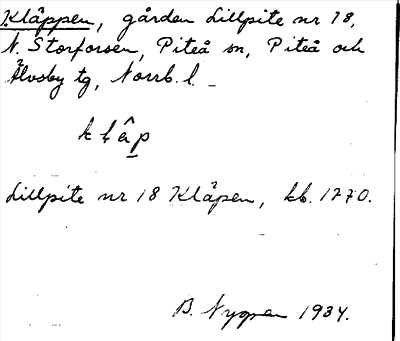 Kläppen, gården Lillpite nr 18,
N. Storforsen, Piteå sn, Piteå och
Älvsby tg, Norrb. l.
Lillpite nr 18 Kläpen, kb. 1770.
B. Nygren 1934.